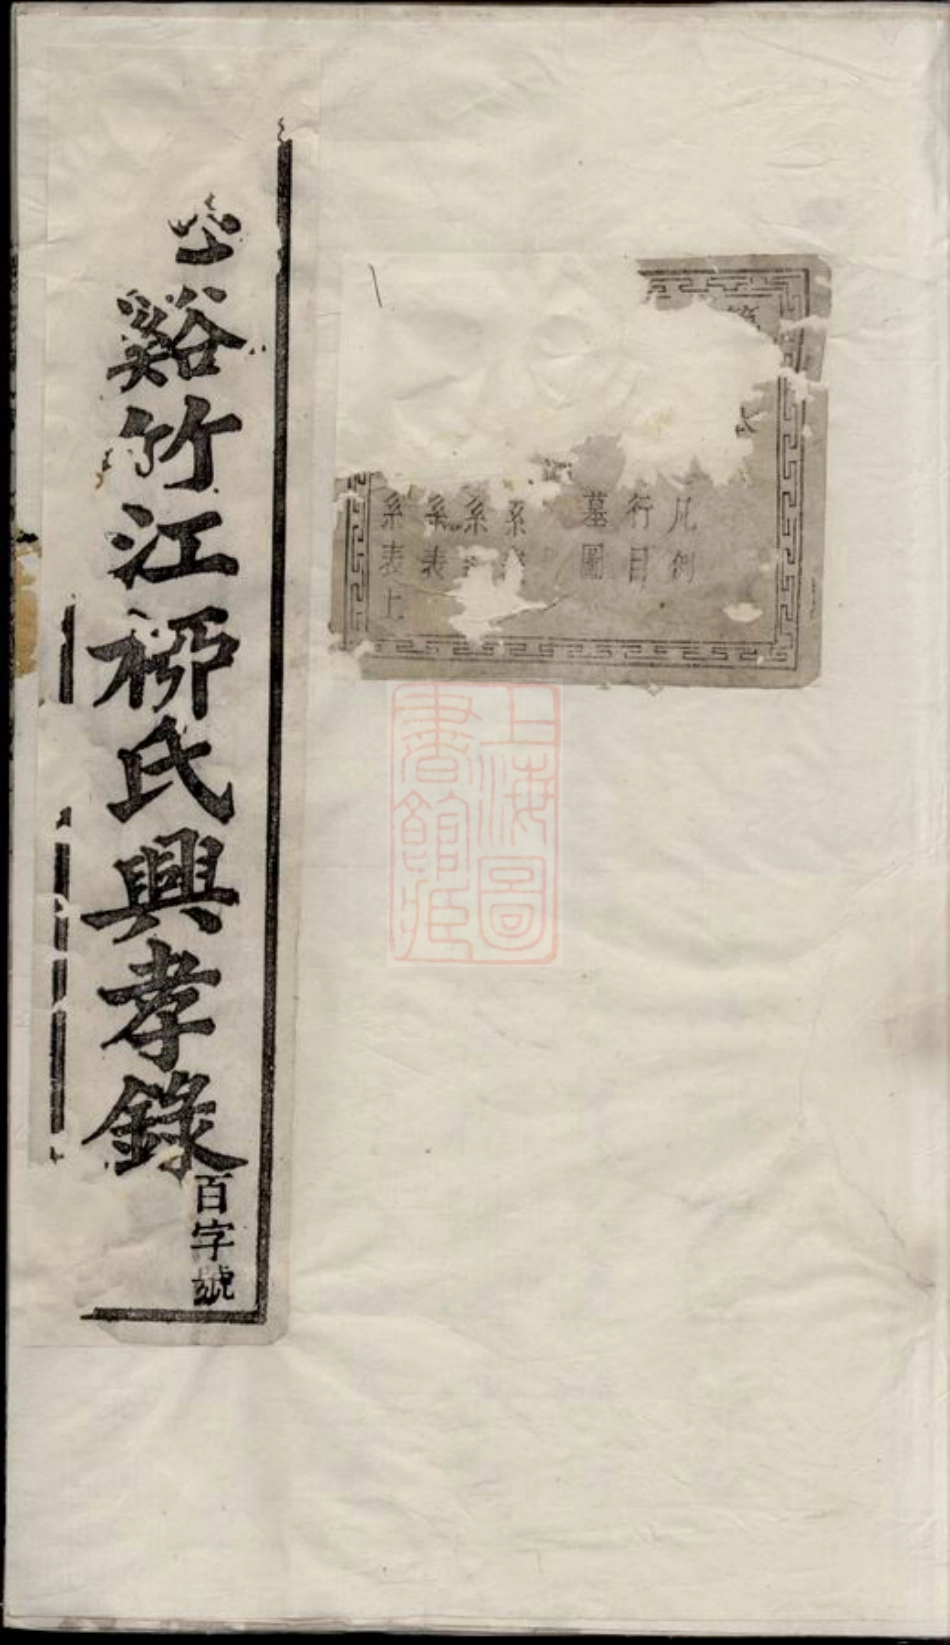 凡例
行目
墓圖
系
系
系表
系表上
上海圖
書館藏
谿竹江柳氏興孝錄
百字號